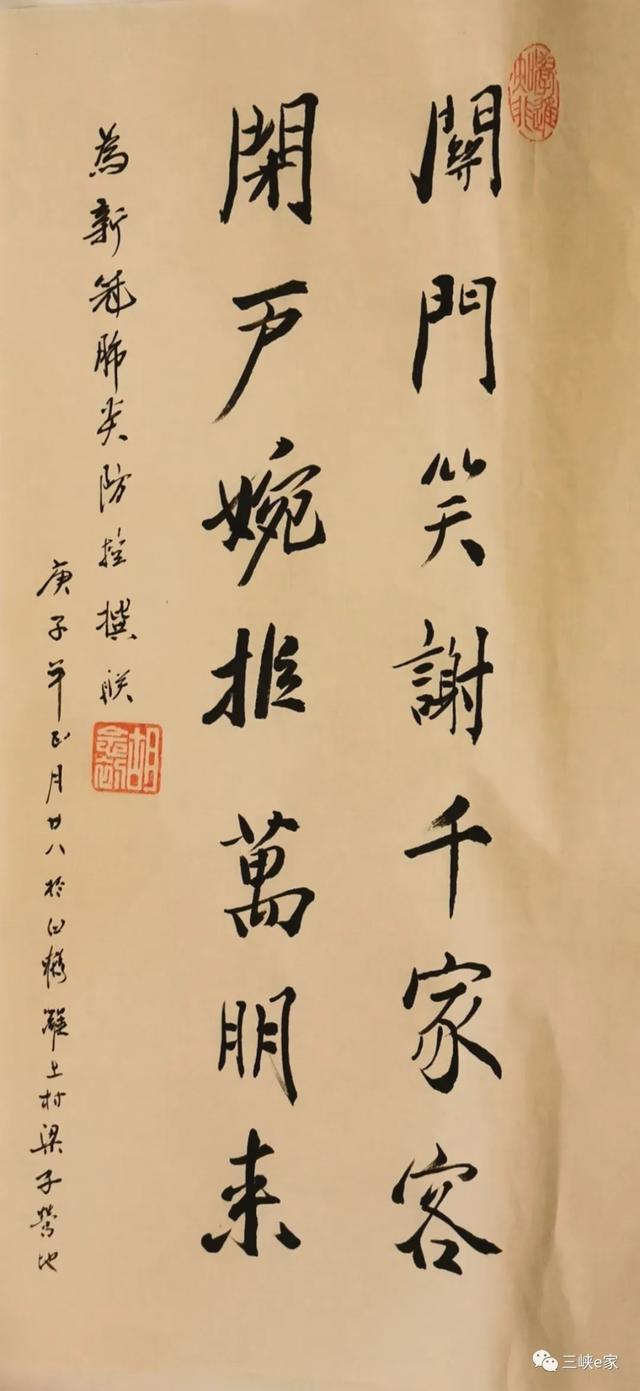 關門笑謝千家客
閉户婉推萬朋来
為新冠肺炎防控撰联
庚子年正月廿八於白鶴灘上村梁子營地
三峡e家